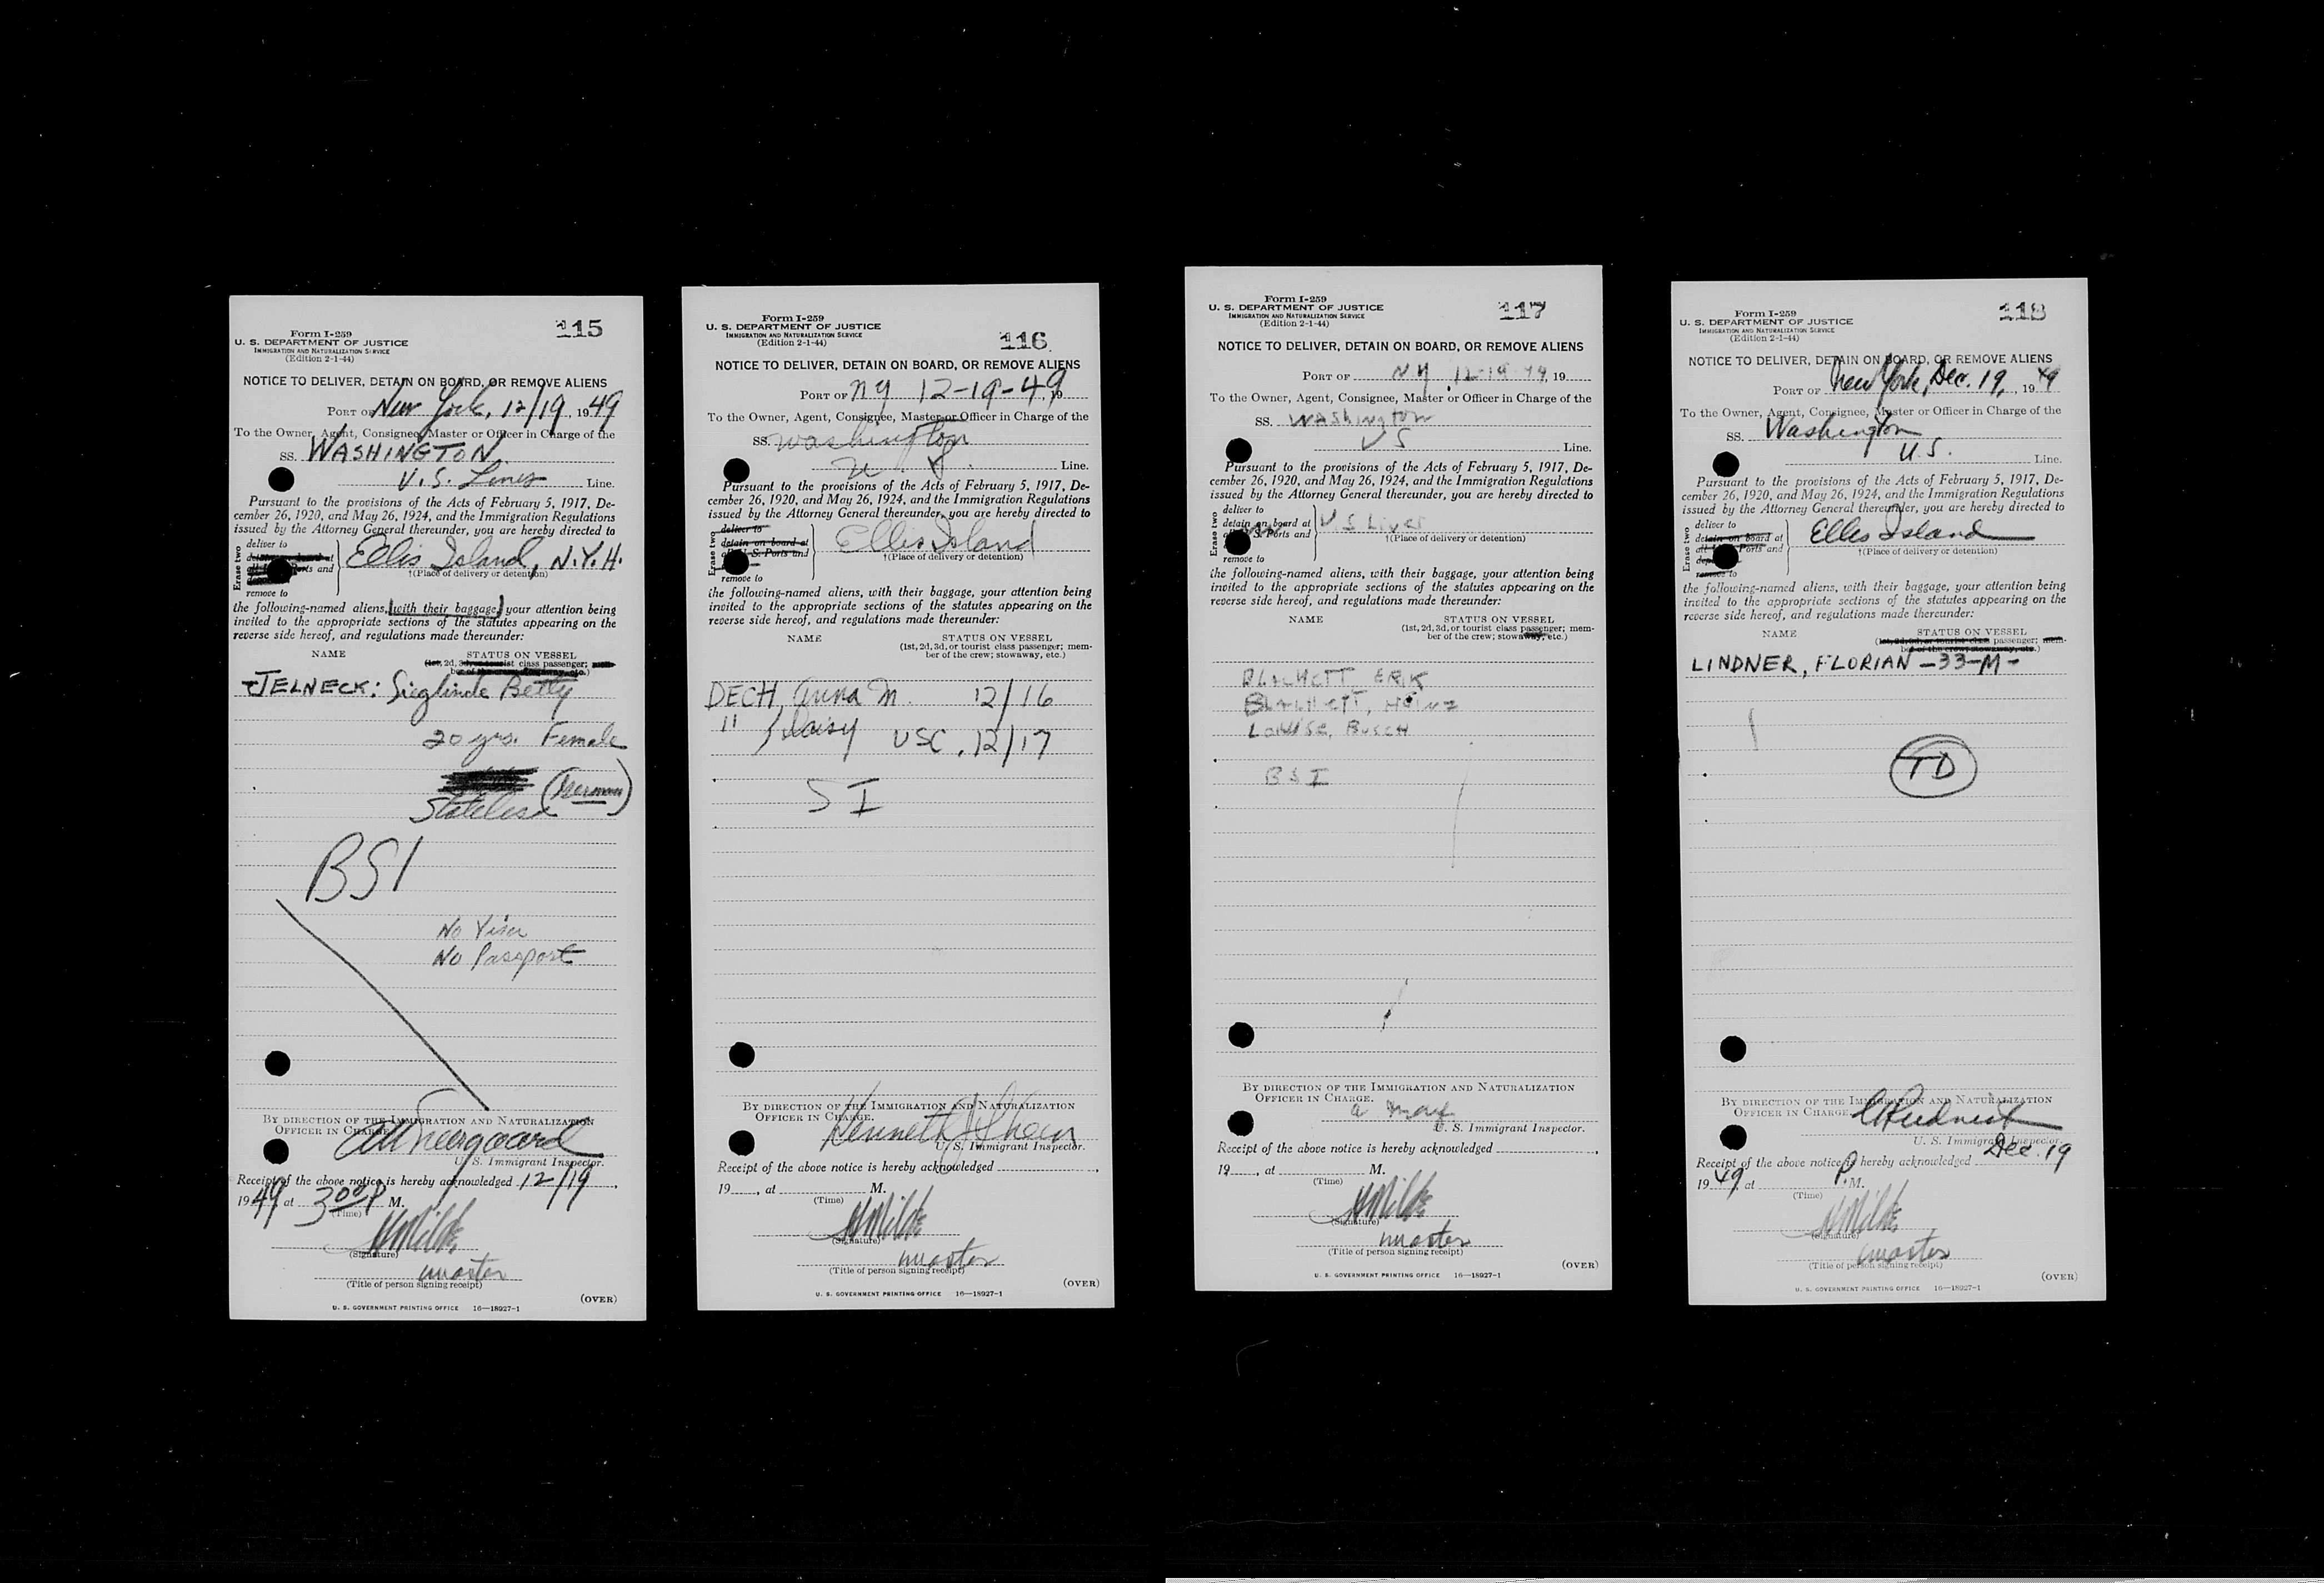 115
Form I-259
U. S. DEPARTMENT OF JUSTICE
IMMIGRATION AND NATURALIZATION SERVICE
(Edition 2-1-44)
NOTICE TO DELIVER, DETAIN ON BOARD, OR REMOVE ALIENS
PORT OF New York, 12/19, 1949
To the Owner, Agent, Consignee, Master or Officer in Charge of the
SS. WASHINGTON
U.S. Lines Line.
Pursuant to the provisions of the Acts of February 5, 1917, De-
cember 26, 1920, and May 26, 1924, and the Immigration Regulations
issued by the Attorney General thereunder, you are hereby directed to
Erase two
deliver to
detain on board at
Ports and
Ellis Island, N.Y.H.
†(Place of delivery or detention)
remove to
the following-named aliens, (with their baggage,) your attention being
invited to the appropriate sections of the statutes appearing on the
reverse side hereof, and regulations made thereunder:
NAME STATUS ON VESSEL
(1st, 2d, 3d, or tourist class passenger; mem-
ber of the crew; stowaway, etc.)
JELNECK: Sieglinde Betty
20 yrs. Female
(German)
Stateless
BSI
No Visa
No Passport
BY DIRECTION OF THE IMMIGRATION AND NATURALIZATION
OFFICER IN CHARGE.
U. S. Immigrant Inspector.
Receipt of the above notice is hereby acknowledged 12/19,
1949, at 3:00 P M.
(Time)
(Signature)
master
(Title of person signing receipt)
(OVER)
U. S. GOVERNMENT PRINTING OFFICE 16—18927-1
116
Form I-259
U. S. DEPARTMENT OF JUSTICE
IMMIGRATION AND NATURALIZATION SERVICE
(Edition 2-1-44)
NOTICE TO DELIVER, DETAIN ON BOARD, OR REMOVE ALIENS
PORT OF NY 12-19-49, 19
To the Owner, Agent, Consignee, Master or Officer in Charge of the
SS. Washington
U.S. Line.
Pursuant to the provisions of the Acts of February 5, 1917, De-
cember 26, 1920, and May 26, 1924, and the Immigration Regulations
issued by the Attorney General thereunder, you are hereby directed to
Erase two
deliver to
detain on board at
S. Ports and
Ellis Island
†(Place of delivery or detention)
remove to
the following-named aliens, with their baggage, your attention being
invited to the appropriate sections of the statutes appearing on the
reverse side hereof, and regulations made thereunder:
NAME STATUS ON VESSEL
(1st, 2d, 3d, or tourist class passenger; mem-
ber of the crew; stowaway, etc.)
DECH, Anna M. 12/16
" , Daisy USC. 12/17
S I
BY DIRECTION OF THE IMMIGRATION AND NATURALIZATION
OFFICER IN CHARGE.
Kenneth
U. S. Immigrant Inspector.
Receipt of the above notice is hereby acknowledged
19 , at M.
(Time)
(Signature)
master
(Title of person signing receipt)
(OVER)
U. S. GOVERNMENT PRINTING OFFICE 16—18927-1
117
Form I-259
U. S. DEPARTMENT OF JUSTICE
IMMIGRATION AND NATURALIZATION SERVICE
(Edition 2-1-44)
NOTICE TO DELIVER, DETAIN ON BOARD, OR REMOVE ALIENS
PORT OF NY 12-19-49, 19
To the Owner, Agent, Consignee, Master or Officer in Charge of the
SS. Washington
US Line.
Pursuant to the provisions of the Acts of February 5, 1917, De-
cember 26, 1920, and May 26, 1924, and the Immigration Regulations
issued by the Attorney General thereunder, you are hereby directed to
Erase two
deliver to
detain on board at
S. Ports and
U S Lines
†(Place of delivery or detention)
remove to
the following-named aliens, with their baggage, your attention being
invited to the appropriate sections of the statutes appearing on the
reverse side hereof, and regulations made thereunder:
NAME STATUS ON VESSEL
(1st, 2d, 3d, or tourist class passenger; mem-
ber of the crew; stowaway, etc.)
ERIK
HEINZ
LOUISE, BUSCH
BSI
BY DIRECTION OF THE IMMIGRATION AND NATURALIZATION
OFFICER IN CHARGE.
U. S. Immigrant Inspector.
Receipt of the above notice is hereby acknowledged
19 , at M.
(Time)
(Signature)
master
(Title of person signing receipt)
(OVER)
U. S. GOVERNMENT PRINTING OFFICE 16—18927-1
118
Form I-259
U. S. DEPARTMENT OF JUSTICE
IMMIGRATION AND NATURALIZATION SERVICE
(Edition 2-1-44)
NOTICE TO DELIVER, DETAIN ON BOARD, OR REMOVE ALIENS
PORT OF New York, Dec. 19, 1949
To the Owner, Agent, Consignee, Master or Officer in Charge of the
SS. Washington
U.S. Line.
Pursuant to the provisions of the Acts of February 5, 1917, De-
cember 26, 1920, and May 26, 1924, and the Immigration Regulations
issued by the Attorney General thereunder, you are hereby directed to
Erase two
deliver to
detain on board at
Ports and
Ellis Island
†(Place of delivery or detention)
remove to
the following-named aliens, with their baggage, your attention being
invited to the appropriate sections of the statutes appearing on the
reverse side hereof, and regulations made thereunder:
NAME STATUS ON VESSEL
(1st, 2d, 3d, or tourist class passenger; mem-
ber of the crew; stowaway, etc.)
LINDNER, FLORIAN -33-M-
TD
BY DIRECTION OF THE IMMIGRATION AND NATURALIZATION
OFFICER IN CHARGE.
U. S. Immigrant Inspector.
Receipt of the above notice is hereby acknowledged Dec. 19
1949, at P. M.
(Time)
(Signature)
master
(Title of person signing receipt)
(OVER)
U. S. GOVERNMENT PRINTING OFFICE 16—18927-1